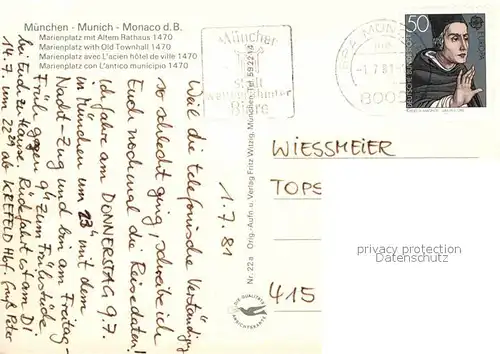 München - Munich - Monaco d.B.
Marienplatz mit Altem Rathaus 1470
Marienplatz with Old Townhall 1470
Marienplatz avec L'acien hôtel de ville 1470
Marienplatz con L'antico municipio 1470
Münchner
Stadt
weltberühmter
Biere
-1.7.81-
800
50
DEUTSCHE BUNDESPOST
1.7.81
Weil die telefonische Verständigung
so schlecht ging, schreibe ich
Euch nochmal die Reisedaten!
Ich fahre am DONNERSTAG 9.7.
in München um 23 mit dem
Nacht-Zug und bin am Freitag-
Früh gegen 9 zum Frühstück
bei Euch zu Hause. Rückfahrt ist am DI
14.7. um 22 ab KREFELD Hbf. Gruß Peter
Nr. 22a Orig.-Aufn. u. Verlag Fritz Witzig, München, Tel. 59 22 14
DIE QUALITÄTS
ANSICHTSKARTE
WIESSMEIER
TOPS
415
privacy protection
Datenschutz